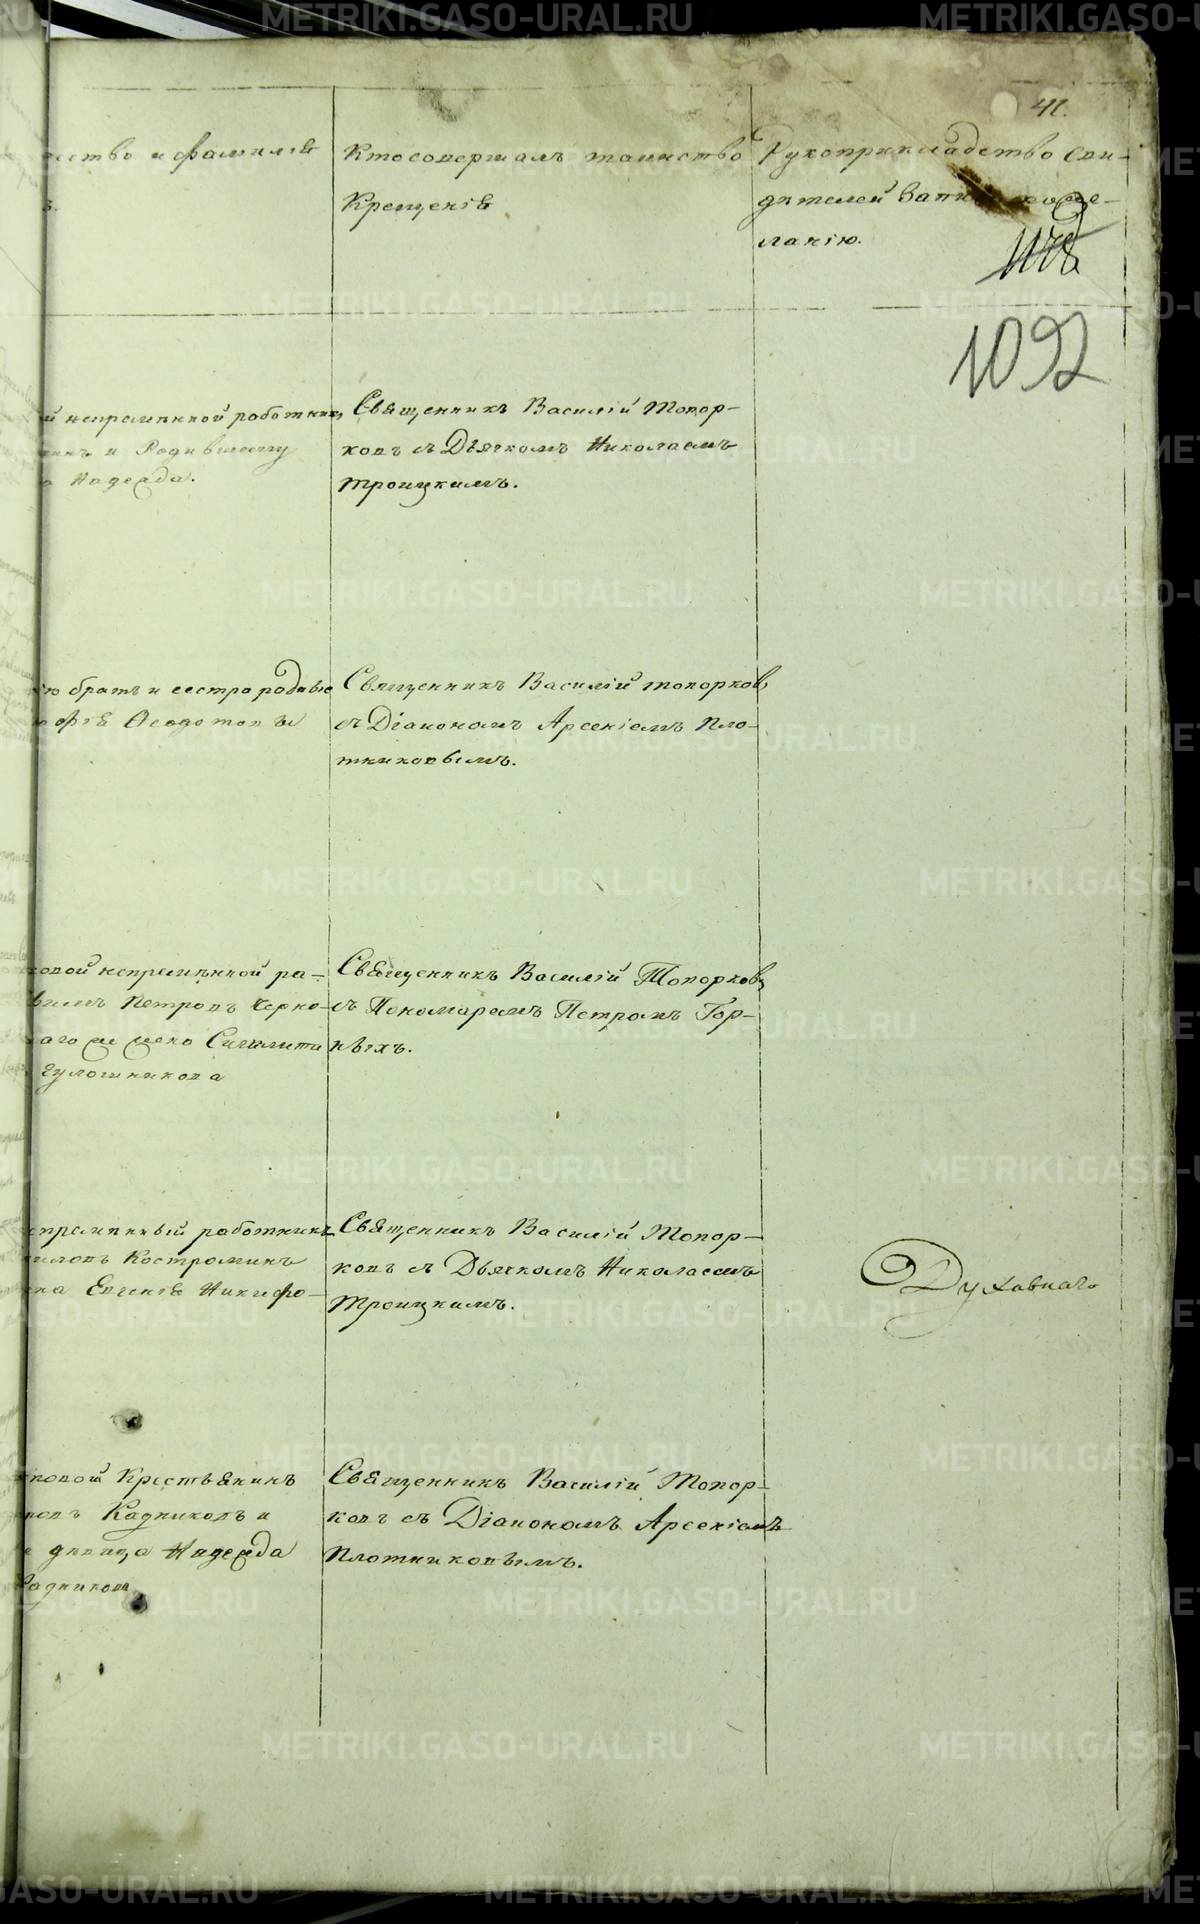 41.
чество и фамилія
Кто совершалъ таинство
Крещенія
Рукоприкладство сви-
дѣтелей
ланію.
1092
й непремѣнной работникъ
и Родившему
а Надежда.
Священникъ Василій Топор-
ковъ съ Дьячкомъ Николаемъ
Троицкимъ.
ію братъ и сестра родные
офія Ѳеодотовы
Священникъ Василій Топорковъ
съ Діакономъ Арсеніемъ Пло-
тниковымъ.
ковой непремѣнной ра-
Петровъ Черно-
Гулошникова
Священникъ Василій Топорковъ
съ Пономаремъ Петромъ Гор-
ныхъ.
епремѣнный работникъ
иловъ Костроминъ
ека Евгенія Никифо-
Священникъ Василій Топор-
ковъ съ Дьячкомъ Николаемъ
Троицкимъ.
Духовнаго
новой Крестьянинъ
новъ Кадниковъ и
е дѣвица Надежда
Кадникова
Священникъ Василій Топор-
ковъ съ Діакономъ Арсеніемъ
Плотниковымъ.
METRIKI.GASO-URAL.RU